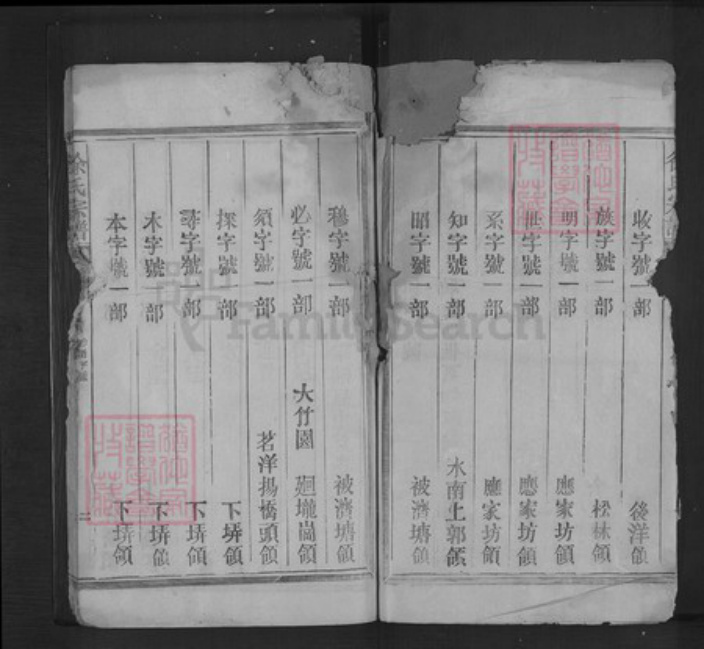 收字號一部 後洋領
族字號一部 松林領
明字號一部 應家坊領
世字號一部 應家坊領
系字號一部 應家坊領
知字號一部 水南上郭領
昭字號一部 被濟塘領
穆字號一部 被濟塘領
必字號一部 大竹園 廻壠崗領
須字號一部 茗洋揚橋頭領
探字號一部 下塝領
尋字號一部 下塝領
木字號一部 下塝領
本字號一部 下塝領
徐氏宗譜
FamilySearch